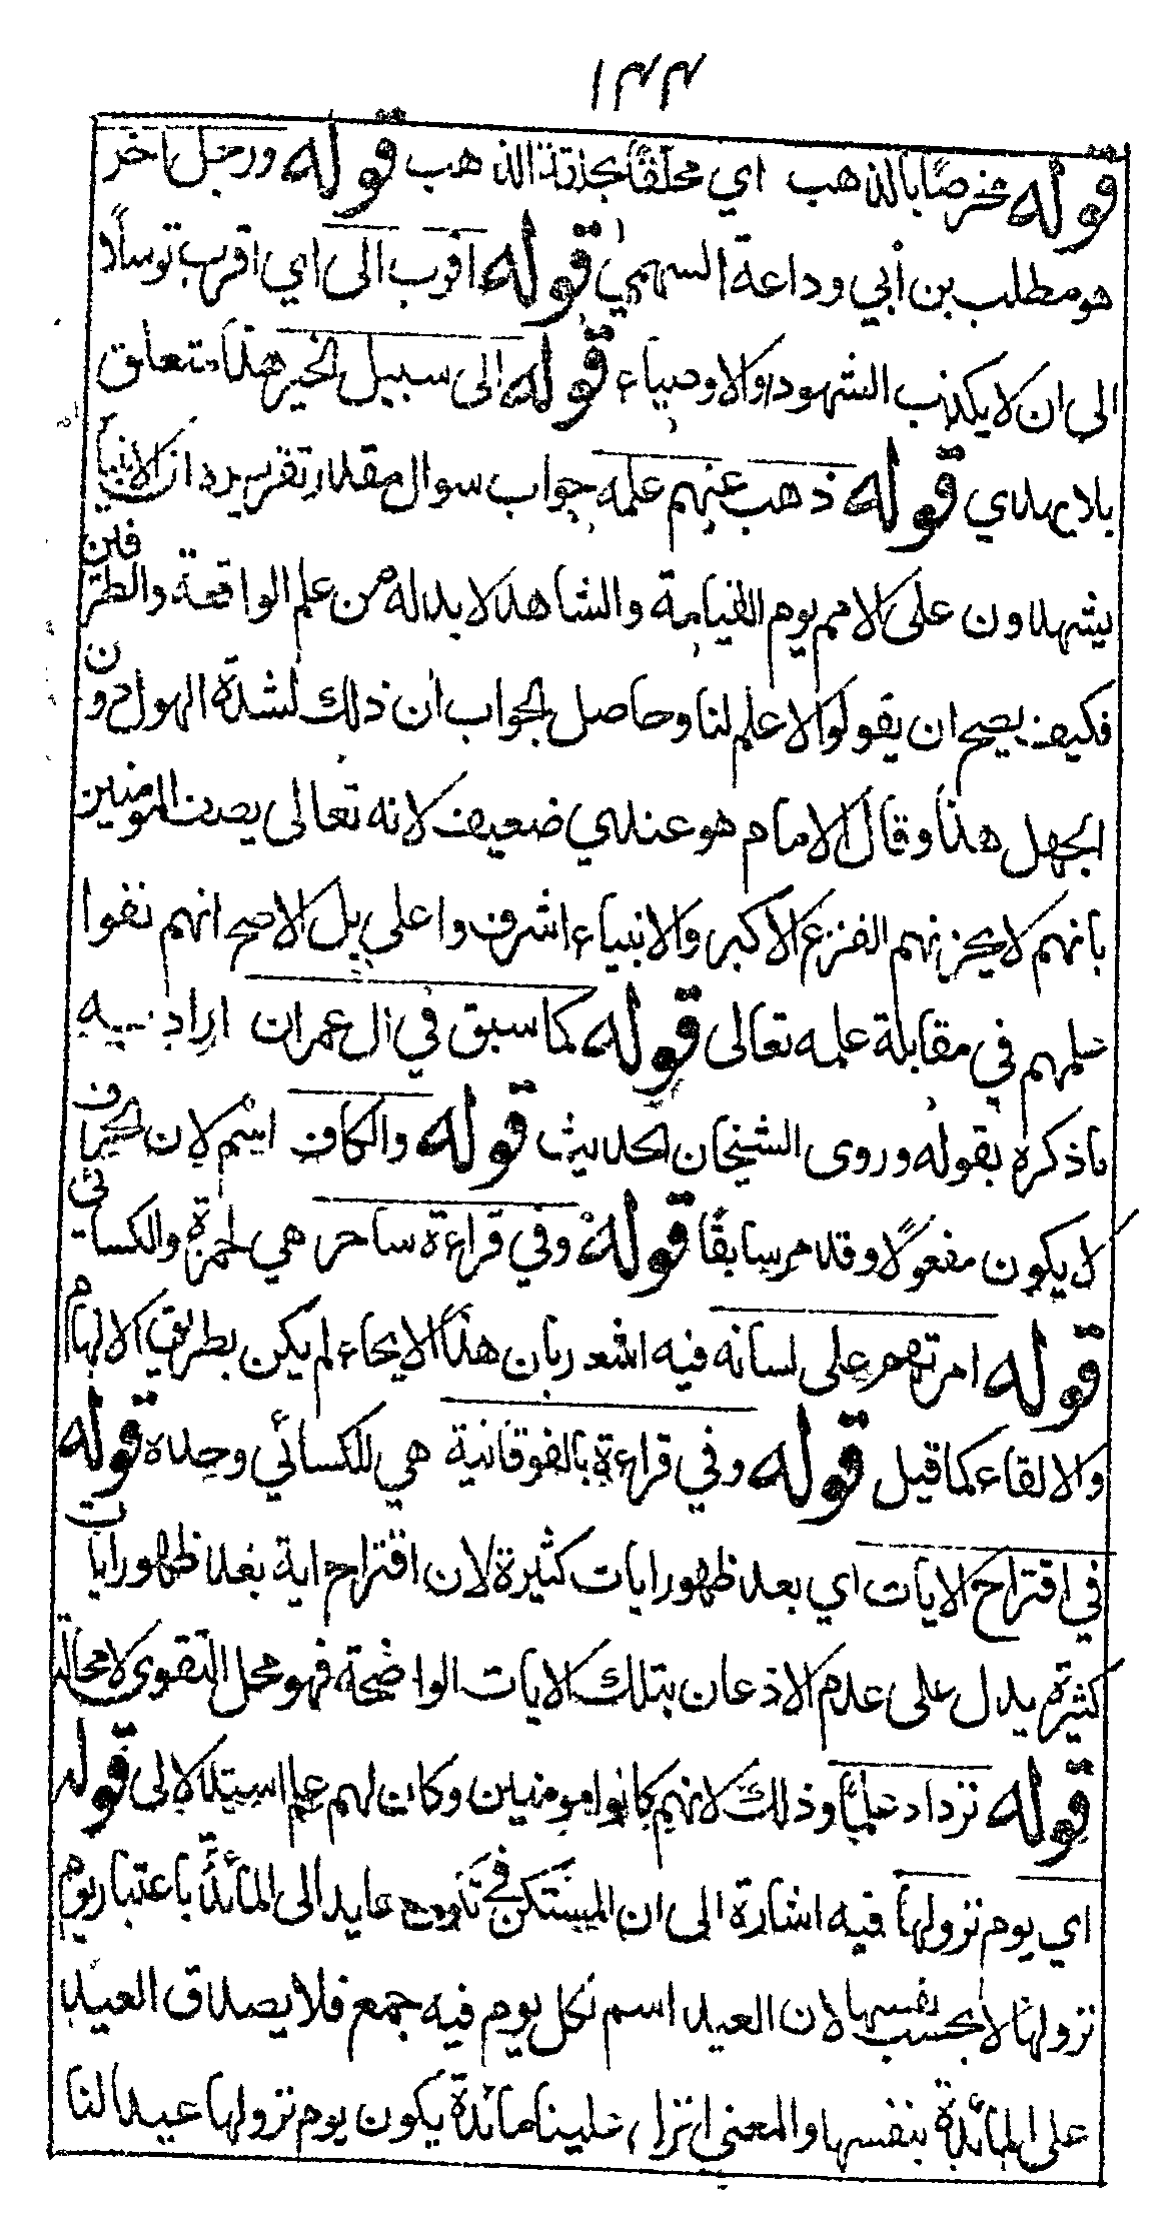 ١٣٣
قوله مخرصًا بالذهب اي محلقًا بحلقة الذهب قوله ورجل اخر
هو مطلب بن أبي وداعة السهمي قوله اقرب الى اي اقرب توسلًا
الى ان لا يكذب الشهود والاوصياء قوله الى سبيل الخير هذا متعلق
بلا يهدي قوله ذهب عنهم علمه جواب سوال مقدر تقريره ان الانبياء
يشهدون على الامم يوم القيامة والشاهد لا بد له من علم الواقعة والطرفين
فكيف يصح ان يقولوا لا علم لنا وحاصل الجواب ان ذلك لشدة الهول دون
الجهل هذا وقال الامام هو عندي ضعيف لانه تعالى يصف المومنين
بانهم لا يحزنهم الفزع الاكبر والانبياء اشرف واعلى بل الاصح انهم نفوا
علمهم في مقابلة علمه تعالى قوله كما سبق في ال عمران اراد به
ماذكره بقوله وروى الشيخان الحديث قوله والكاف اسم لان الحرف
لا يكون مفعولًا وقد مر سابقًا قوله وفي قراءة ساحر هي لحمزة والكسائي
قوله امرتهم على لسانه فيه اشعار بان هذا الايحاء لم يكن بطريق الالهام
والالقاء كما قيل قوله وفي قراءة بالفوقانية هي للكسائي وحده قوله
في اقتراح الايات اي بعد ظهور ايات كثيرة لان اقتراح اية بعد ظهور ايات
كثيرة يدل على عدم الاذعان بتلك الايات الواضحة فهو محل التقوى لا محالة
قوله نزداد علمًا وذلك لانهم كانوا مومنين وكان لهم علم استدلالى قوله
اي يوم نزولها فيه اشارة الى ان المستكن في تكون عايد الى المائدة باعتبار يوم
نزولها لا بحسب نفسها لان العيد اسم لكل يوم فيه جمع فلا يصدق العيد
على المائدة بنفسها والمعنى انزل علينا مائدة يكون يوم نزولها عيدا لنا